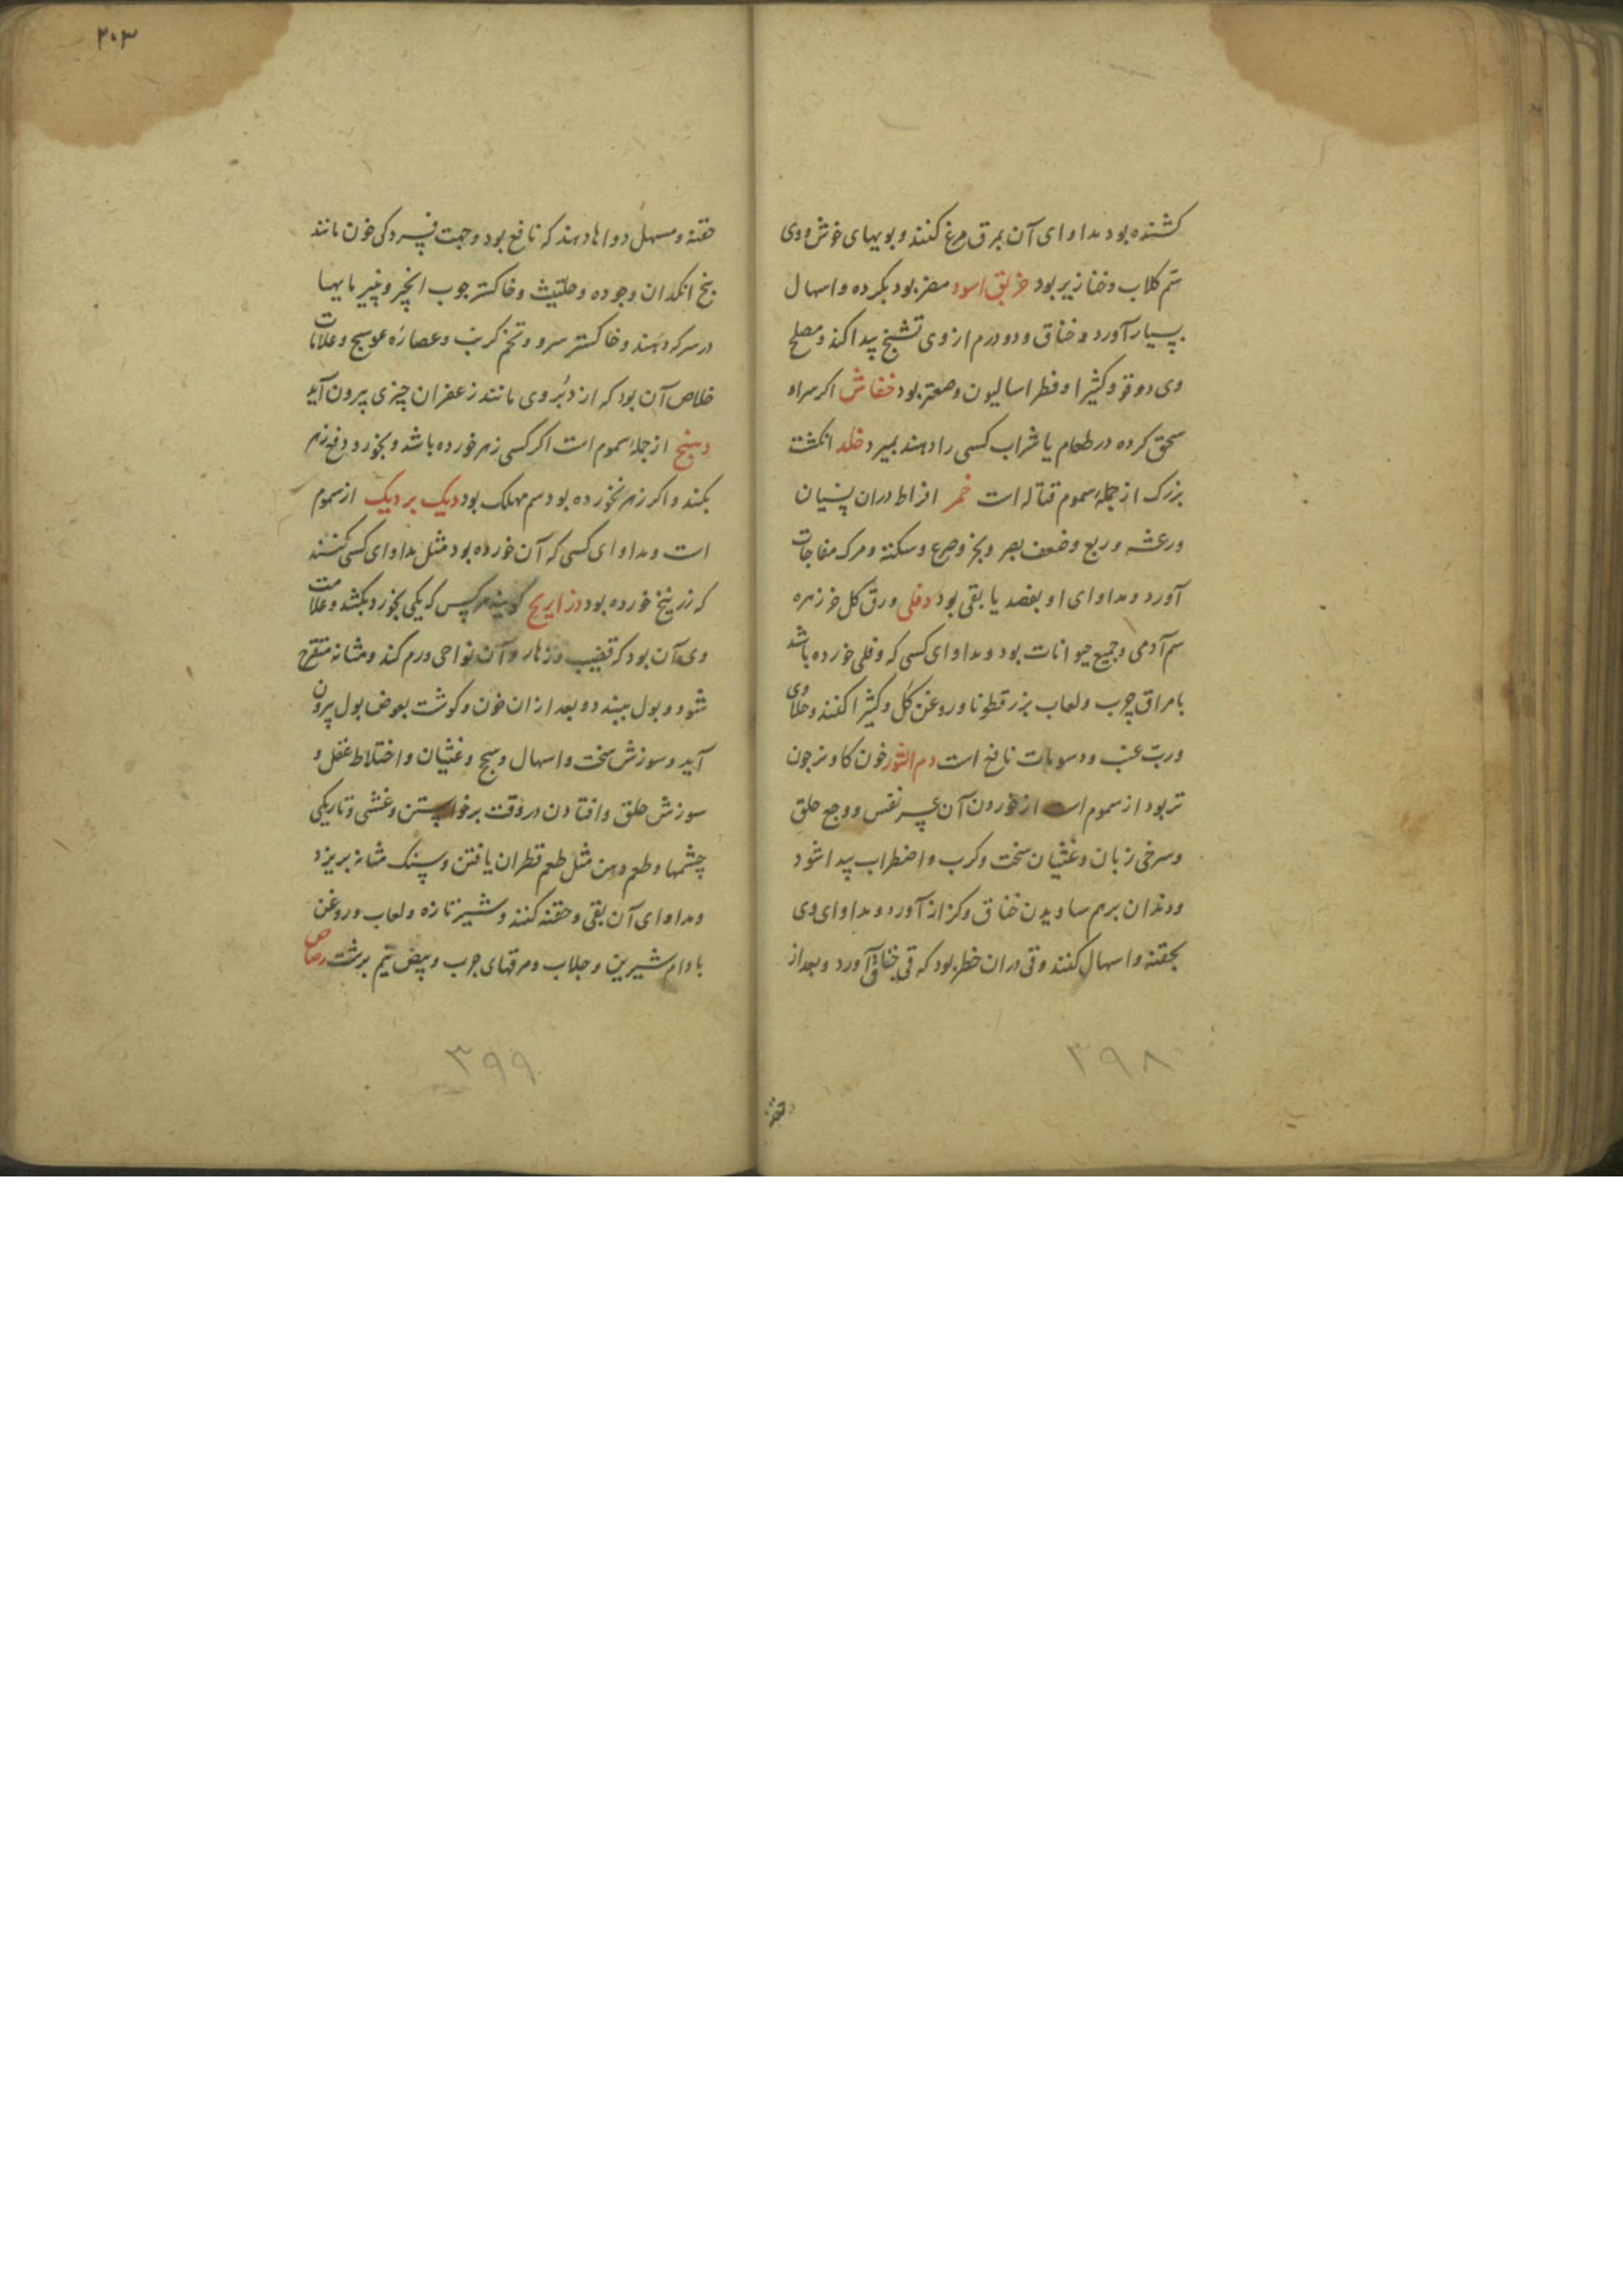 کشنده بود مداوای آن بمرق مرغ کنند و بویهای خوش و وی
سم کلاب و خنازیر بود خربق اسود مضر بود بگرده و اسهال
بسیار آورد و خناق و دو درم از وی تشنج پیدا کند و مصلح
وی دوقو و کثیرا و فطراسالیون و صعتر بود خفاش اکر سر او
سحق کرده در طعام یا شراب کسی را دهند بمیرد خلد انکشت
بزرک از جملهٔ سموم قتاله است خمر افراط دران نسیان
و رعشه و ربع و ضعف بصر و بخر و صرع و سکته و مرک مفاجات
آورد و مداوای او بفصد یا بقی بود دفلی ورق کل خرزهره
سم آدمی و جمیع حیوانات بود و مداوای کسی که دفلی خورده باشد
بامراق چرب و لعاب بزرقطونا و روغن کل و کثیرا کنند و حلاوی
و ربّ عنب و دسومات نافع است دم الثور خون کاو نر چون
تر بود از سموم است از خوردن آن عسر نفس و وجع حلق
و سرخی زبان و غثیان سخت و کرب و اضطراب پیدا شود
و دندان برهم ساویدن خناق و کزاز آورد و مداوای وی
بحقنه و اسهال کنند و قی دران خطر بود که قی خناق آورد و بعد از
۳۹۸
حقنه
۲۰۳
حقنه و مسهل دواها دهند که نافع بود و جهت فسردکی خون مانند
بیخ انکدان و جوده و حلتیث و خاکستر چوب انجیر و پنیر مایها
در سرکه دهند و خاکستر سرو و تخم کرنب و عصارهٔ عوسج و علامات
خلاص آن بود که از دبُر وی مانند زعفران چیزی بیرون آید
دهنج از جملهٔ سموم است اکر کسی زهر خورده باشد و بخورد دفع زهر
بکند و اکر زهر نخورده بود سم مهلک بود دیک بر دیک از سموم
است و مداوای کسی که آن خورده بود مثل مداوای کسی کنند
که زرنیخ خورده بود ذراریح کویند هرکس که یکی بخورد بکشد و علامت
وی آن بود که قضیب و زهار و آن نواحی ورم کند و مثانه متقرح
شود و بول ببندد و بعد ازان خون و کوشت بعوض بول بیرون
آید و سوزش سخت و اسهال و سحج و غثیان و اختلاط عقل و
سوزش حلق و افتادن در وقت برخواستن و غشی و تاریکی
چشمها و طعم دهن مثل طعم قطران یافتن و سنک مثانه بریزد
و مداوای آن بقی و حقنه کنند و شیر تازه و لعاب و روغن
بادام شیرین و جلاب و مرقهای چرب و بیض نیم برشت رصاص
۳۹۹